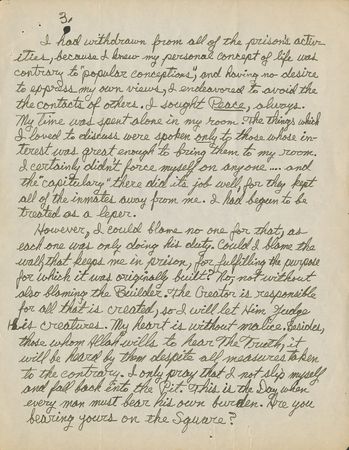 3.
I had withdrawn from all of the prison's activ-
ities, because I knew my personal concept of life was
contrary to "popular conceptions", and having no desire
to express my own views, I endeavored to avoid the
the contacts of others. I sought Peace, always.
My time was spent alone in my room. The things which
I loved to discuss were spoken only to those whose in-
terest was great enough to bring them to my room.
I certainly didn't force myself on anyone .... and
the "capitulary" there did its job well, for they kept
all of the inmates away from me. I had begun to be
treated as a leper.
However, I could blame no one for that, as
each one was only doing his duty. Could I blame the
wall, that keeps me in prison, for fulfilling the purpose
for which it was originally built? No, not without
also blaming the Builder. The Creator is responsible
for all that is created, so I will let Him Judge
His creatures. My heart is without malice. Besides,
those whom Allah wills to hear The Truth, it
will be heard by them despite all measures taken
to the contrary. I only pray that I not slip myself
and fall back Into the Pit. This is the Day when
every man must bear his own burden. Are you
bearing yours on the Square?